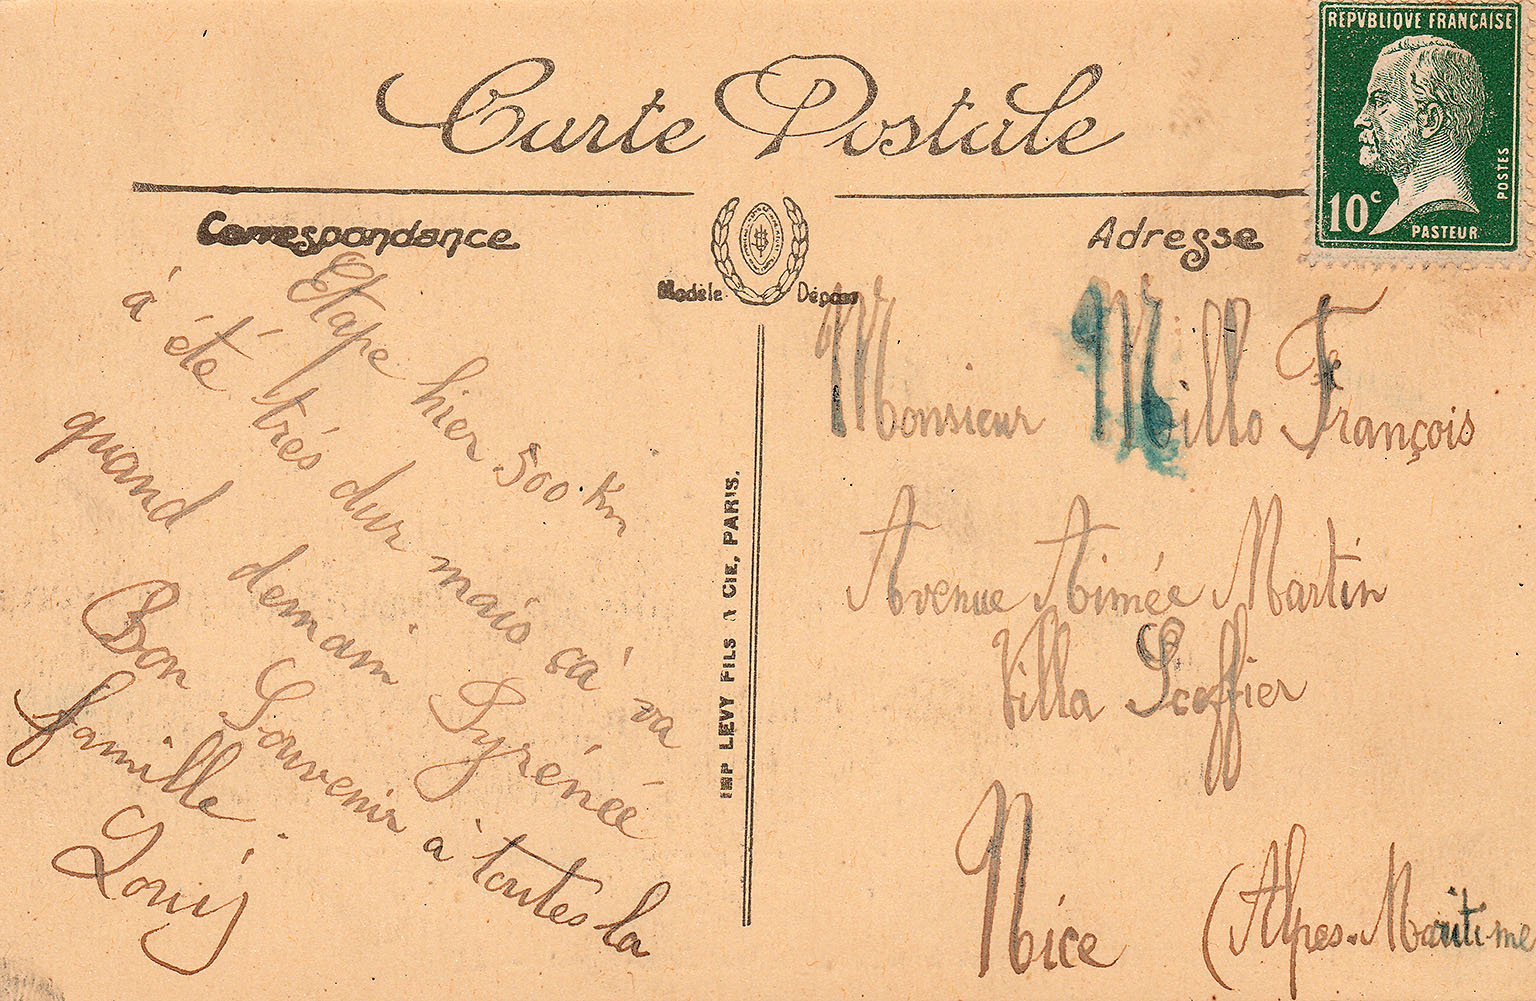 Carte Postale
REPVBLIQVE FRANÇAISE
10c
POSTES
PASTEUR
Correspondance
Adresse
Modèle Déposé
Etape hier 500 Km
à été trés dur mais ça va
quand demain Pyrénéé
Bon Souvenir à toutes la
famille.
Louis
IMP LEVY FILS & CIE, PARIS.
Monsieur Millo François
Avenue Aimée Martin
Villa Scoffier
Nice (Alpes-Maritime